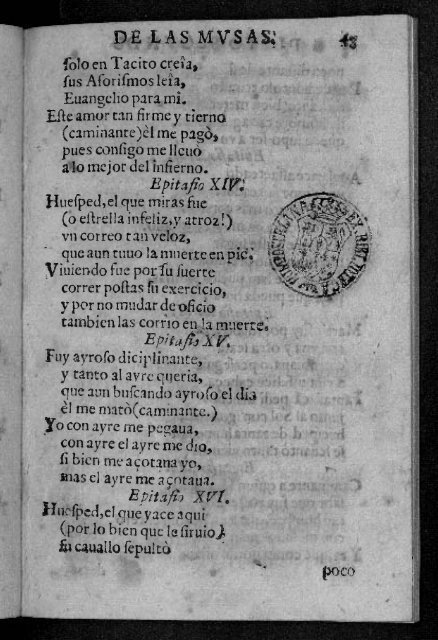 DE LAS MVSAS. 43
solo en Tacito creîa,
sus Aforismos leîa,
Euangelio para mi.
Este amor tan firme y tierno
(caminante) èl me pagò,
pues consigo me lleuò
a lo mejor del infierno.
Epitafio XIV.
Huesped, el que miras fue
(o estrella infeliz, y atroz!)
vn correo tan veloz,
que aun tuuo la muerte en pie.
Viuiendo fue por su suerte
correr postas su exercicio,
y por no mudar de oficio
tambien las corrio en la muerte.
Epitafio XV.
Fuy ayroso diciplinante,
y tanto al ayre queria,
que aun buscando ayroso el dia
èl me matò (caminante.)
Yo con ayre me pegaua,
con ayre el ayre me dio,
si bien me açotana yo,
mas el ayre me açotaua.
Epitafio XVI.
Huesped, el que yace aqui
(por lo bien que le siruio)
su cauallo sepultò
poco